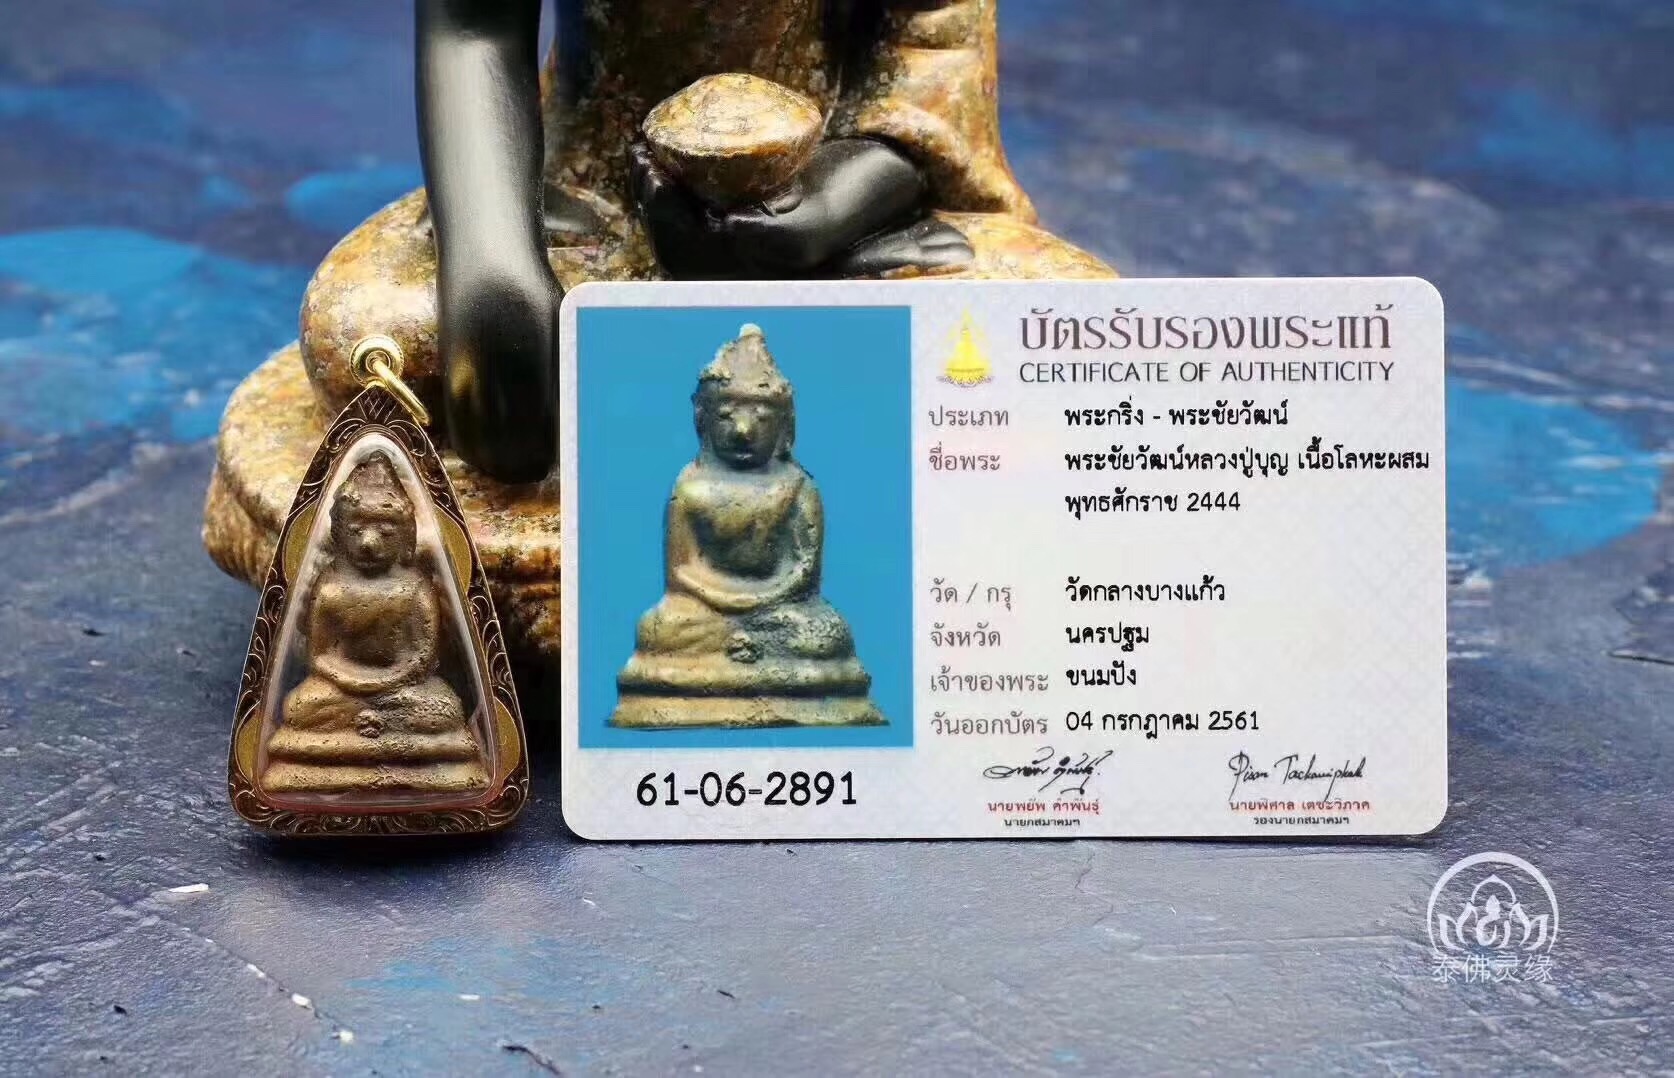 บัตรรับรองพระแท้
CERTIFICATE OF AUTHENTICITY
ประเภท พระกริ่ง - พระชัยวัฒน์
ชื่อพระ พระชัยวัฒน์หลวงปู่บุญ เนื้อโลหะผสม
พุทธศักราช 2444
วัด / กรุ วัดกลางบางแก้ว
จังหวัด นครปฐม
เจ้าของพระ ขนมปัง
วันออกบัตร 04 กรกฎาคม 2561
61-06-2891
นายพยัพ คำพันธุ์
นายกสมาคมฯ
Pisan Tachawiphak
นายพิศาล เตชะวิภาค
รองนายกสมาคมฯ
泰佛灵缘